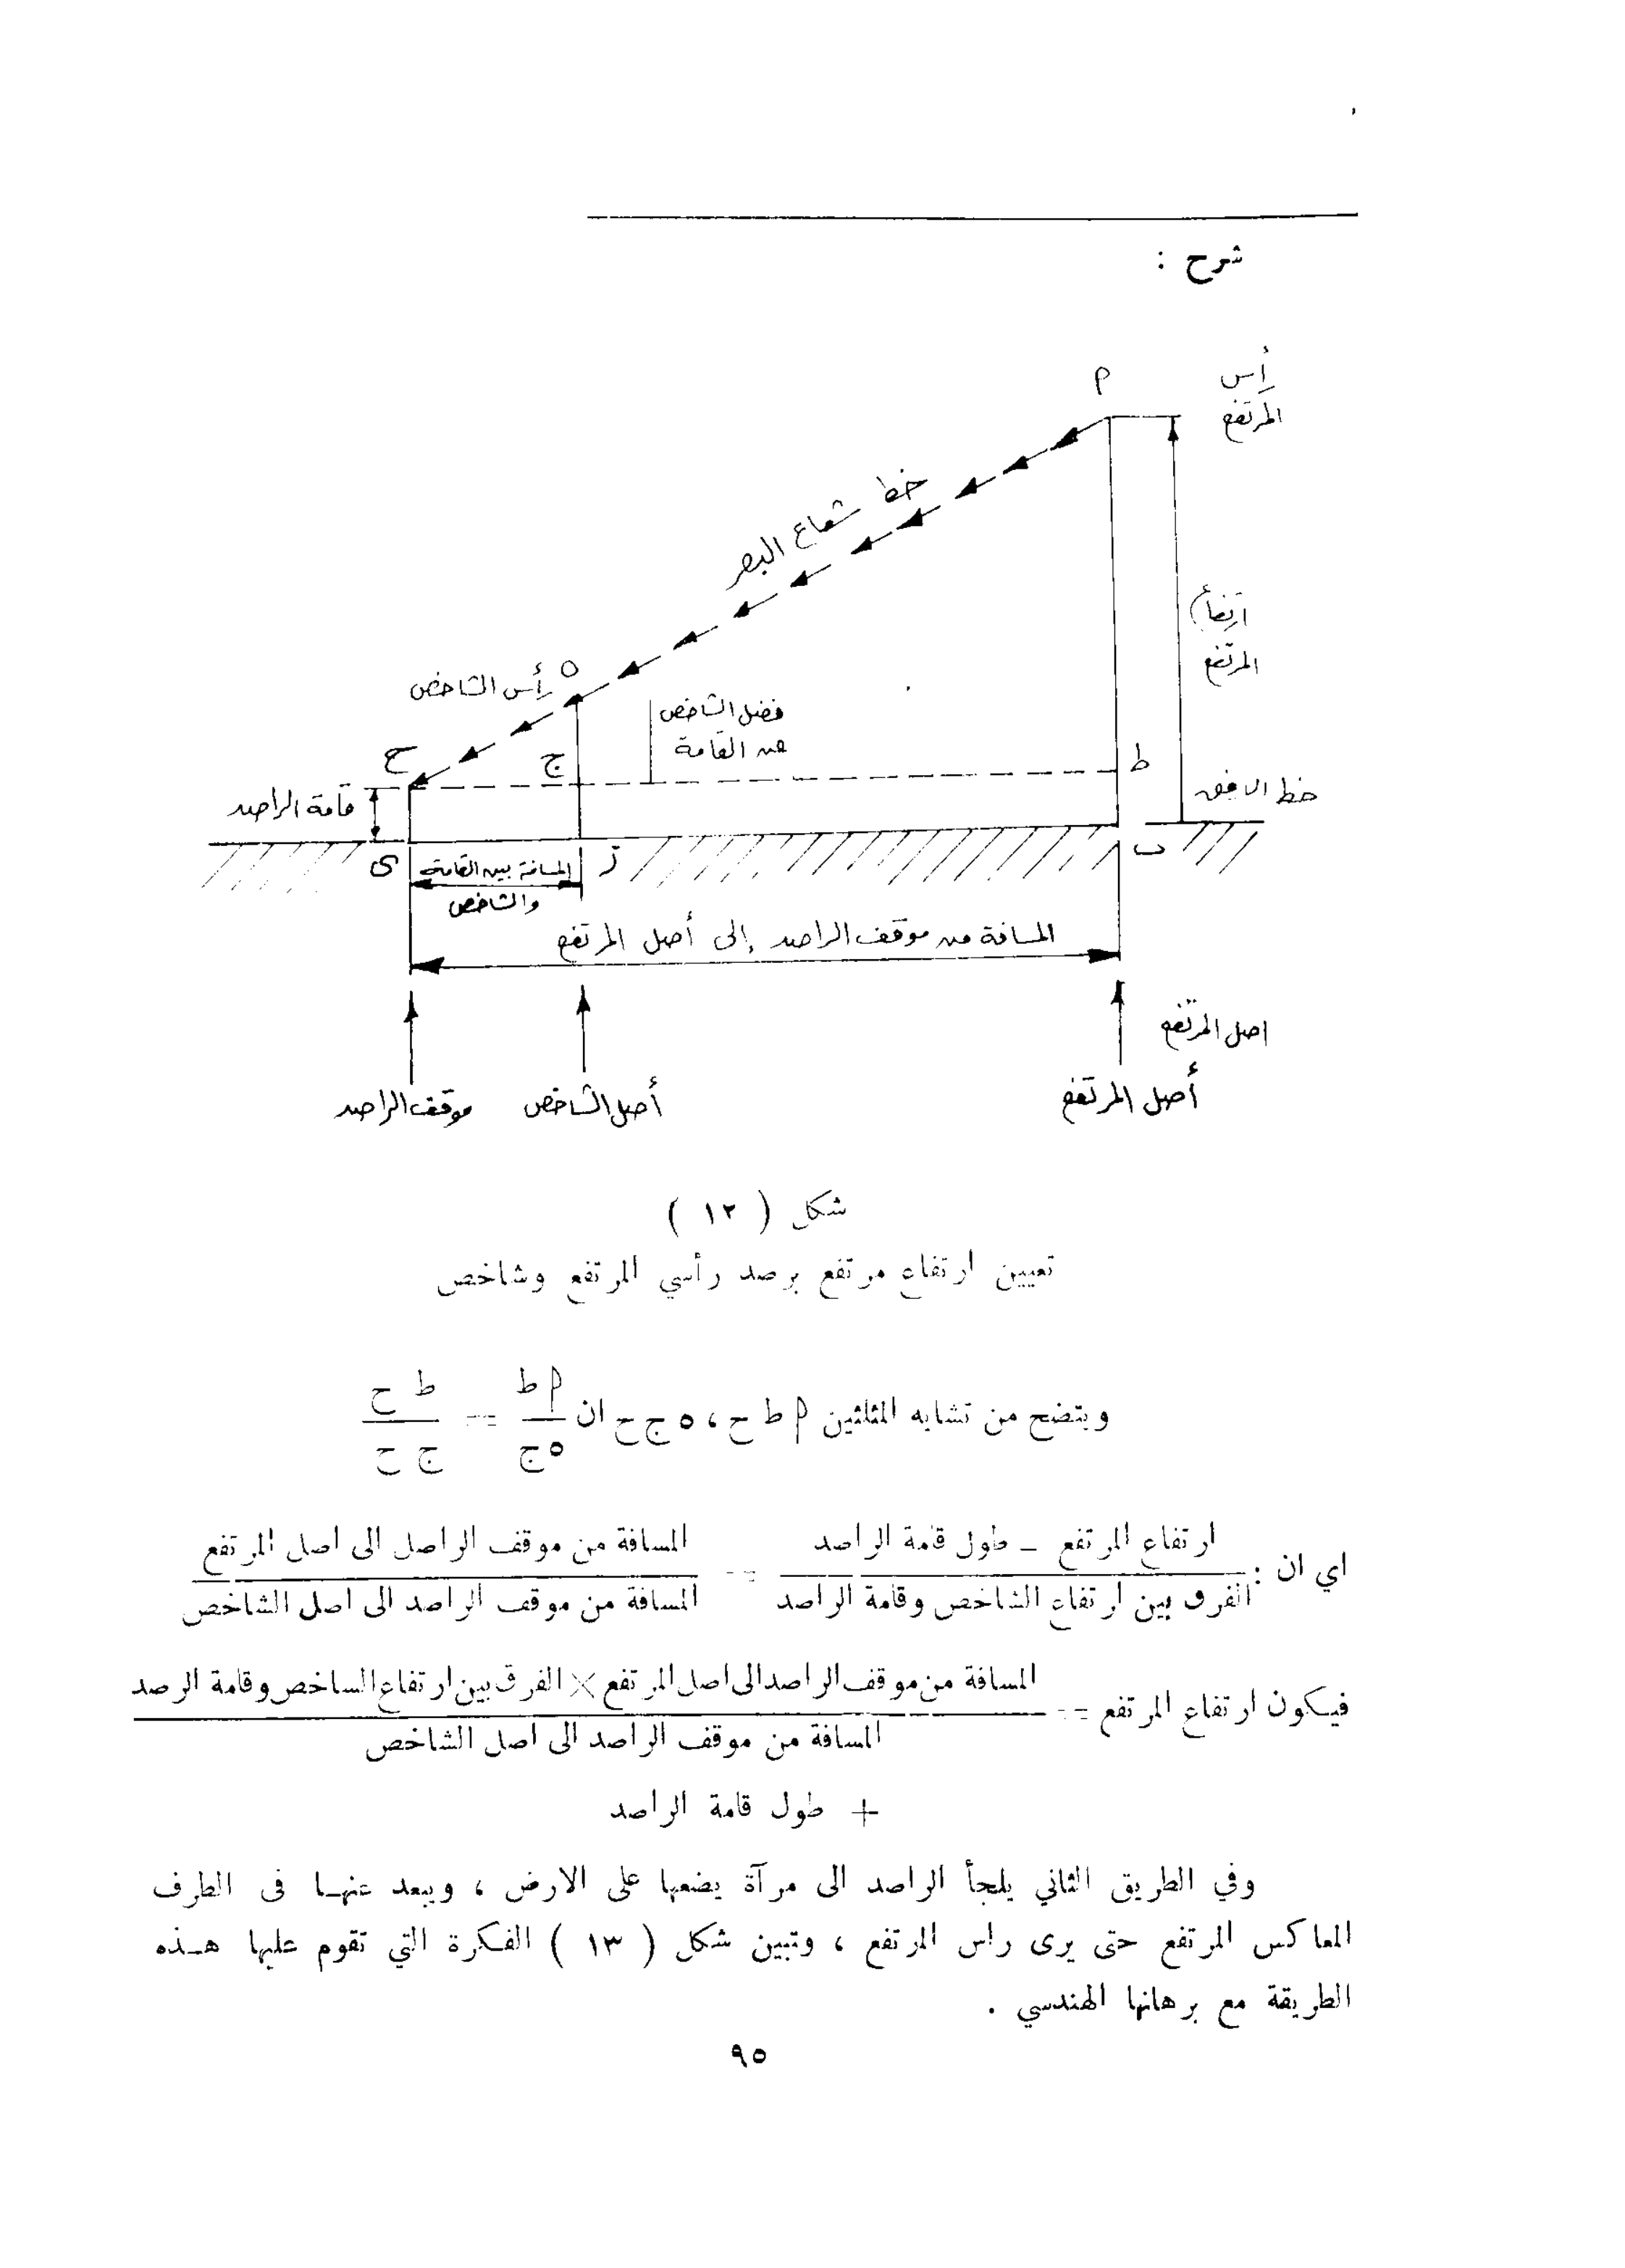 شرح :
أس
المرتفع
م
خط شعاع البصر
ارتفاع
المرتفع
رأس الشاخص
ه
فضل الشاخص
عن القامة
ح
ج
ط
قامة الراصد
خط الافق
ى
المسافة بين القامة
والشاخص
ز
ب
المسافة من موقف الراصد إلى أصل المرتفع
اصل المرتفع
أصل المرتفع
أصل الشاخص
موقف الراصد
شكل ( ١٢ )
تعيين ارتفاع مرتفع برصد رأسي المرتفع وشاخص
ويتضح من تشابه المثلثين م ط ح ، ه ج ح ان م ط / ه ج = ط ح / ج ح
اي ان : ارتفاع المرتفع – طول قامة الراصد / الفرق بين ارتفاع الشاخص وقامة الراصد = المسافة من موقف الراصل الى اصل المرتفع / المسافة من موقف الراصد الى اصل الشاخص
فيكون ارتفاع المرتفع = المسافة من موقف الراصد الى اصل المرتفع × الفرق بين ارتفاع الساخص وقامة الرصد / المسافة من موقف الراصد الى اصل الشاخص
+ طول قامة الراصد
وفي الطريق الثاني يلجأ الراصد الى مرآة يضعها على الارض ، ويبعد عنها فى الطرف
المعاكس المرتفع حتى يرى راس المرتفع ، وتبين شكل ( ١٣ ) الفكرة التي تقوم عليها هذه
الطريقة مع برهانها الهندسي .
٩٥